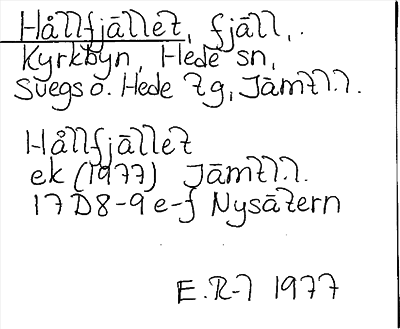 Hållfjället, fjäll,.
Kyrkbyn, Hede sn,
Svegs o. Hede tg, Jämtl.l.
Hållfjället
ek (1977) Jämtl.l.
17D8-9e-f Nysätern
E.R-l 1977